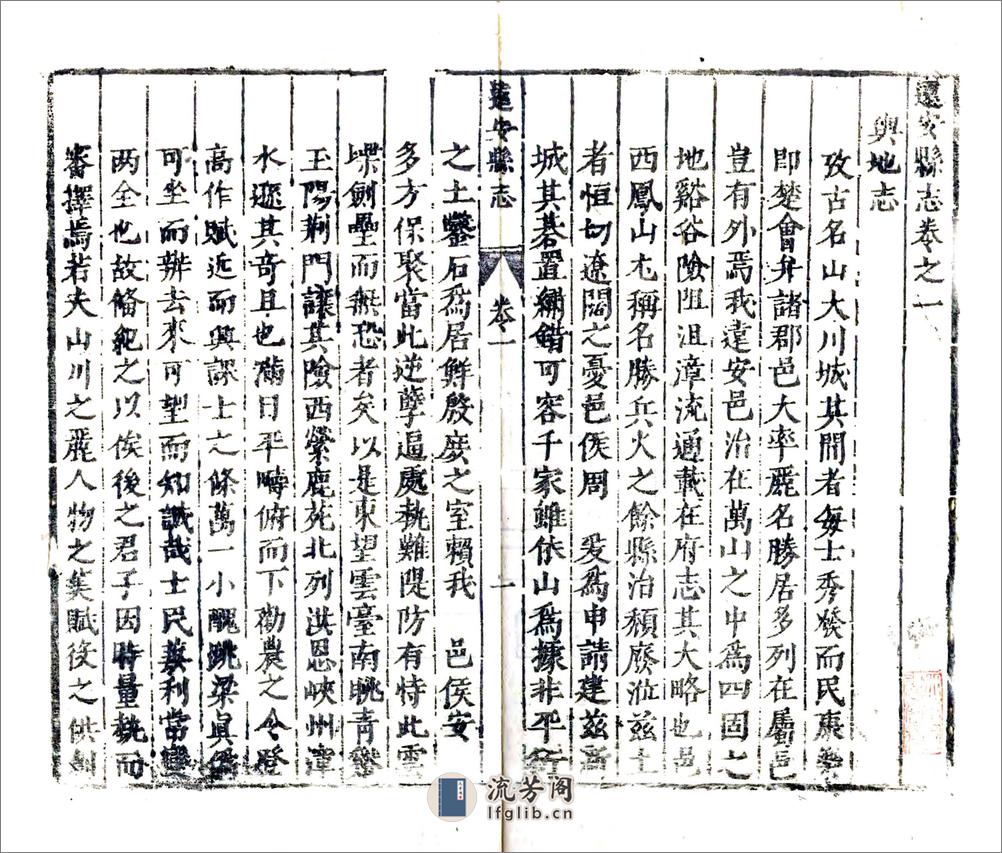 遠安縣志卷之一
輿地志
攷古名山大川城其間者每士秀發而民康
即楚會弁諸郡邑大率麗名勝居多列在屬邑
豈有外焉我遠安邑治在萬山之中為四固之
地谿谷險阻沮漳流通載在府志其大略也邑
西鳳山尤稱名勝兵火之餘縣治頹廢涖茲土
者恒切遼闊之憂邑侯周 爰為申請建茲
城其碁置綉錯可容千家雖依山為據非平
遠安縣志 卷一 一
之土鑿石為居鮮殷庶之室賴我 邑侯安
多方保聚當此逆孽逼處執難隄防有恃此雲
堞劍壘而無恐者矣以是東望雲臺南眺青
玉陽荆門讓其險西縈鹿苑北列洪恩峽州漳
水遜其奇且也滿目平疇俯而下勸農之令登
高作賦近而興課士之條萬一小醜跳梁眞
可坐而辦去來可望而知誠哉士民葵利當
两全也故俻範之以俟後之君子因時量執而
審擇焉若夫山川之麗人物之美賦役之供
流芳阁
lfglib.cn